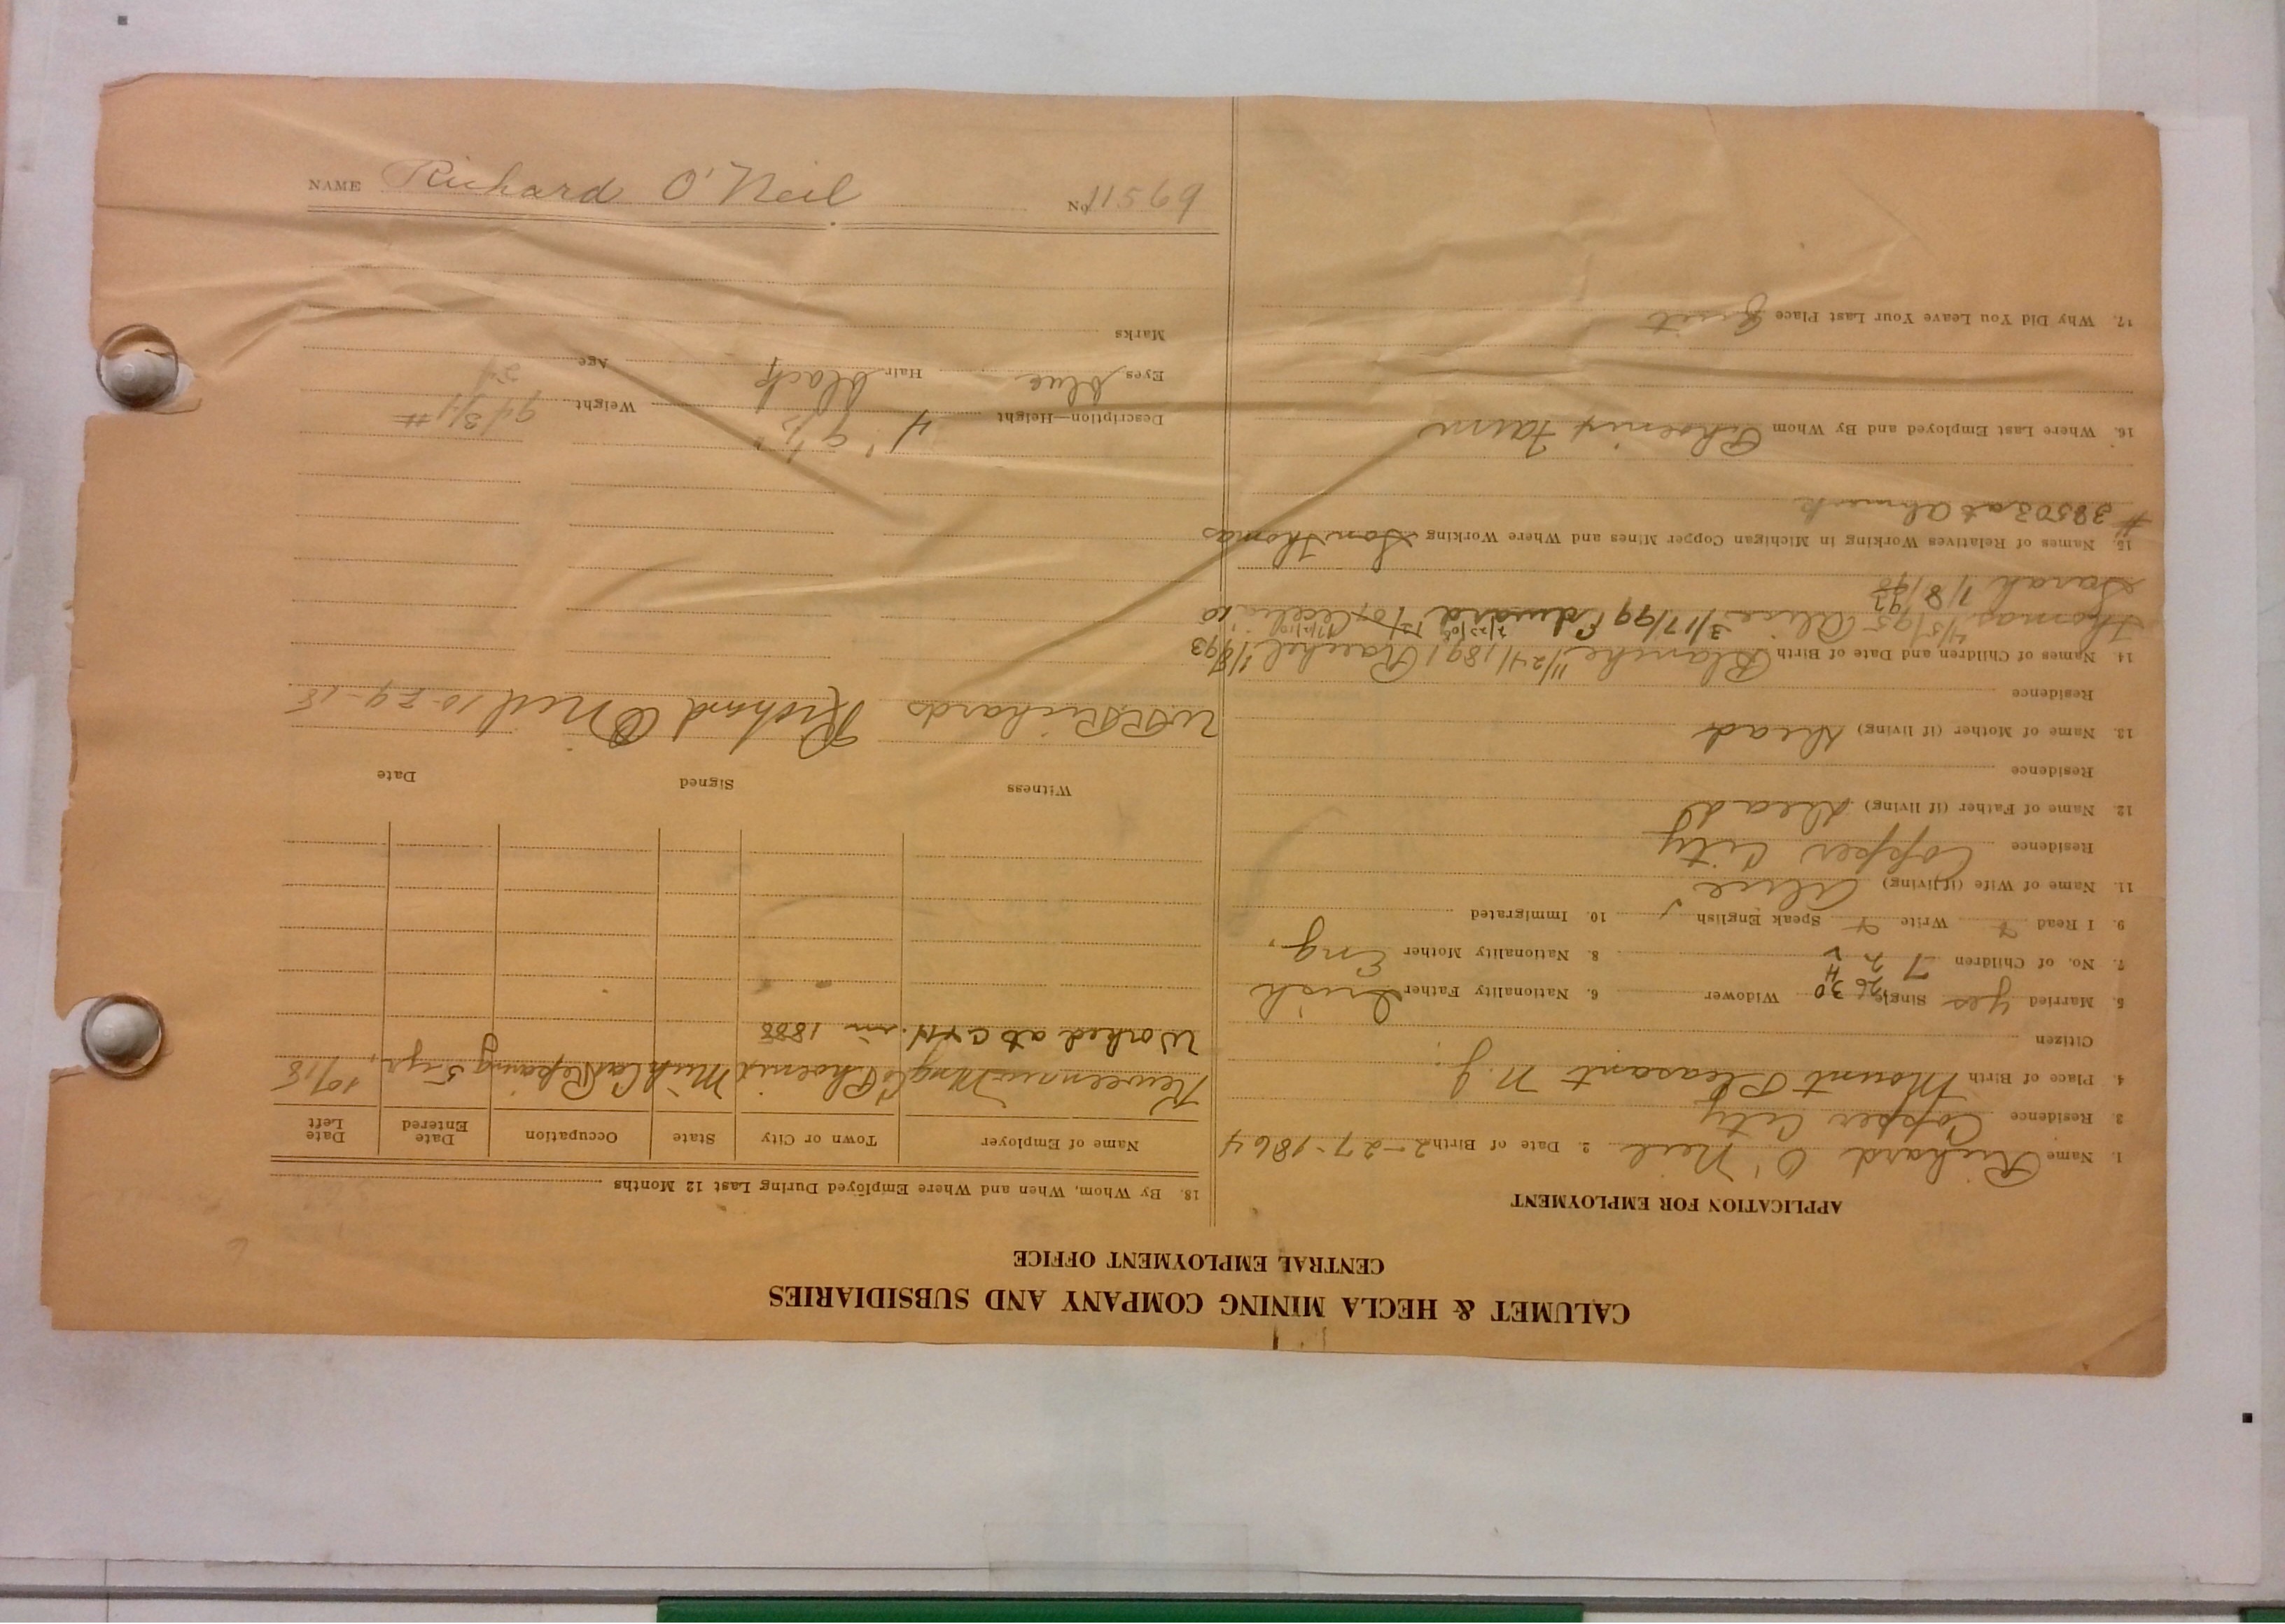 CALUMET & HECLA MINING COMPANY AND SUBSIDIARIES
CENTRAL EMPLOYMENT OFFICE
APPLICATION FOR EMPLOYMENT
1. Name Richard O'Neil 2. Date of Birth 2-27-1864
3. Residence Copper City
4. Place of Birth Mount Pleasant N.J.
Citizen
5. Married yes Single Widower 6. Nationality Father Irish
26 30
7. No. of Children 7 8. Nationality Mother Eng.
9. I Read Write Speak English 10. Immigrated
11. Name of Wife (if living) Alice
Residence Copper City
12. Name of Father (if living) dead
Residence
13. Name of Mother (if living) dead
Residence
14. Names of Children and Date of Birth Blanche 11/24/1891 Rachel 1/8/93
Thomas 4/5/95 Alice 3/17/99 Edward Cecelia 10
Sarah 1/8/93
15. Names of Relatives Working in Michigan Copper Mines and Where Working Son Thomas
# 38503 at Ahmeek
16. Where Last Employed and By Whom Phoenix Farm
17. Why Did You Leave Your Last Place Quit
18. By Whom, When and Where Employed During Last 12 Months
Name of Employer Town or City State Occupation Date Entered Date Left
Keweenaw Phoenix Mich Car Reparing 5 yr, 10/18
Worked at C & H. in 1888
Witness Signed Date
Richards Richard O Neil 10-29-18
Description—Height 4' 9 1/2" Weight 94 3/4 #
Eyes blue Hair black Age 54
Marks
NAME Richard O'Neil No. 11569